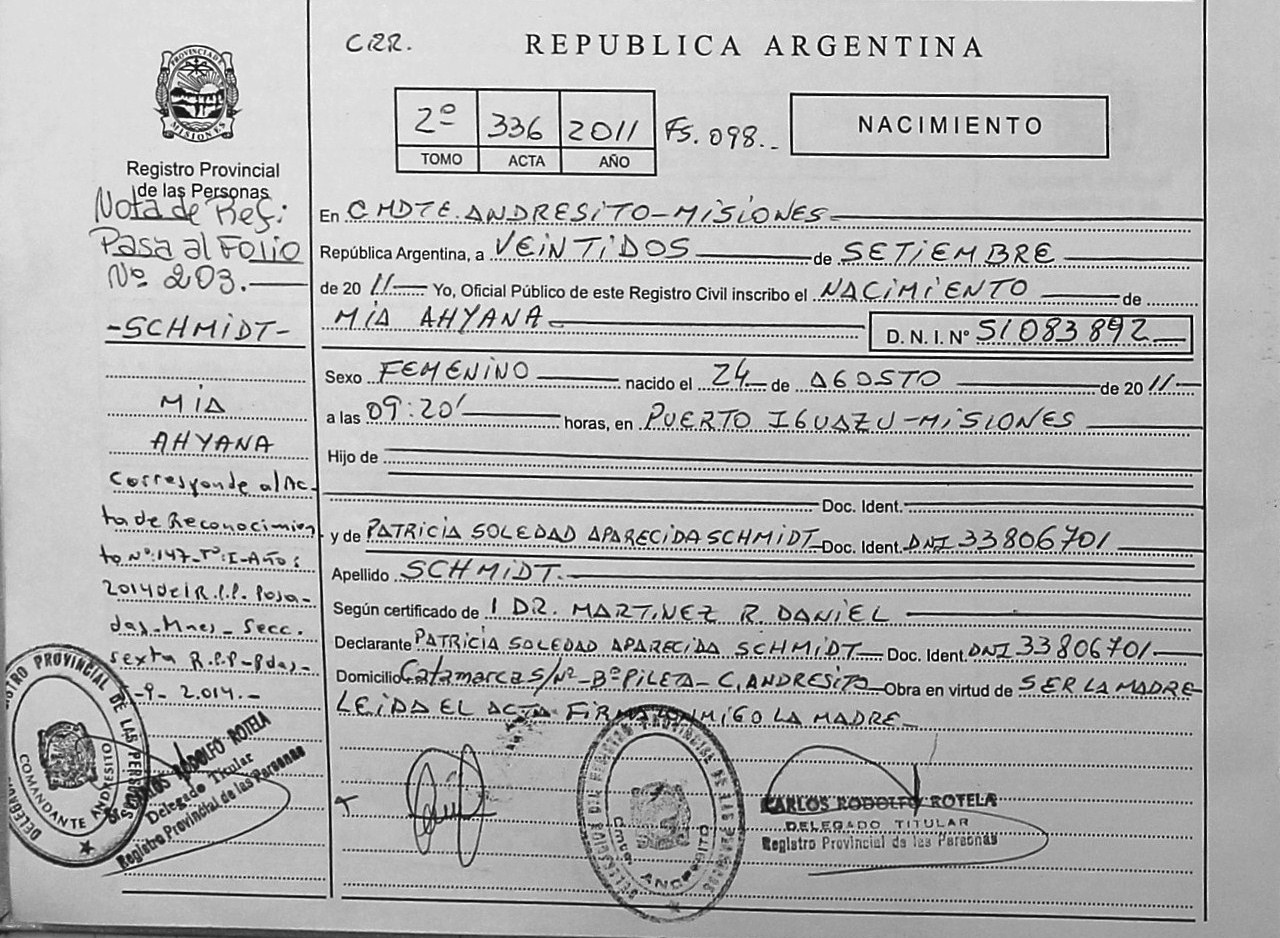 PROVINCIA DE MISIONES
Registro Provincial
de las Personas
Nota de Ref:
Pasa al Folio
Nº 203.
-SCHMIDT-
MIA
AHYANA
Corresponde al Ac-
ta de Reconocimien
to Nº:147-Tº:I-Año:
2014 del R.P.P. Posa-
das-Mnes- Secc.
sexta R.P.P-Pdas-
-9- 2.014.-
CARLOS RODOLFO ROTELA
Delegado Titular
Registro Provincial de las Personas
COMANDANTE ANDRESITO
CRR.
REPUBLICA ARGENTINA
2º 336 2011 FS. 098..
TOMO ACTA AÑO
NACIMIENTO
En CMDTE. ANDRESITO-MISIONES
República Argentina, a VEINTIDOS de SETIEMBRE
de 20 11 Yo, Oficial Público de este Registro Civil inscribo el NACIMIENTO de
MIA AHYANA D. N. I. Nº 51083892
Sexo FEMENINO nacido el 24 de AGOSTO de 20 11
a las 09:20' horas, en PUERTO IGUAZU-MISIONES
Hijo de
Doc. Ident.
y de PATRICIA SOLEDAD APARECIDA SCHMIDT Doc. Ident. DNI 33806701
Apellido SCHMIDT.
Según certificado de 1 DR. MARTINEZ R. DANIEL
Declarante PATRICIA SOLEDAD APARECIDA SCHMIDT Doc. Ident. DNI 33806701
Domicilio Catamarca S/Nº-Bº PILETA- C. ANDRESITO Obra en virtud de SER LA MADRE
LEIDA EL ACTA FIRMA CONMIGO LA MADRE
CARLOS RODOLFO ROTELA
DELEGADO TITULAR
Registro Provincial de las Personas
Cmte. ANDRESITO